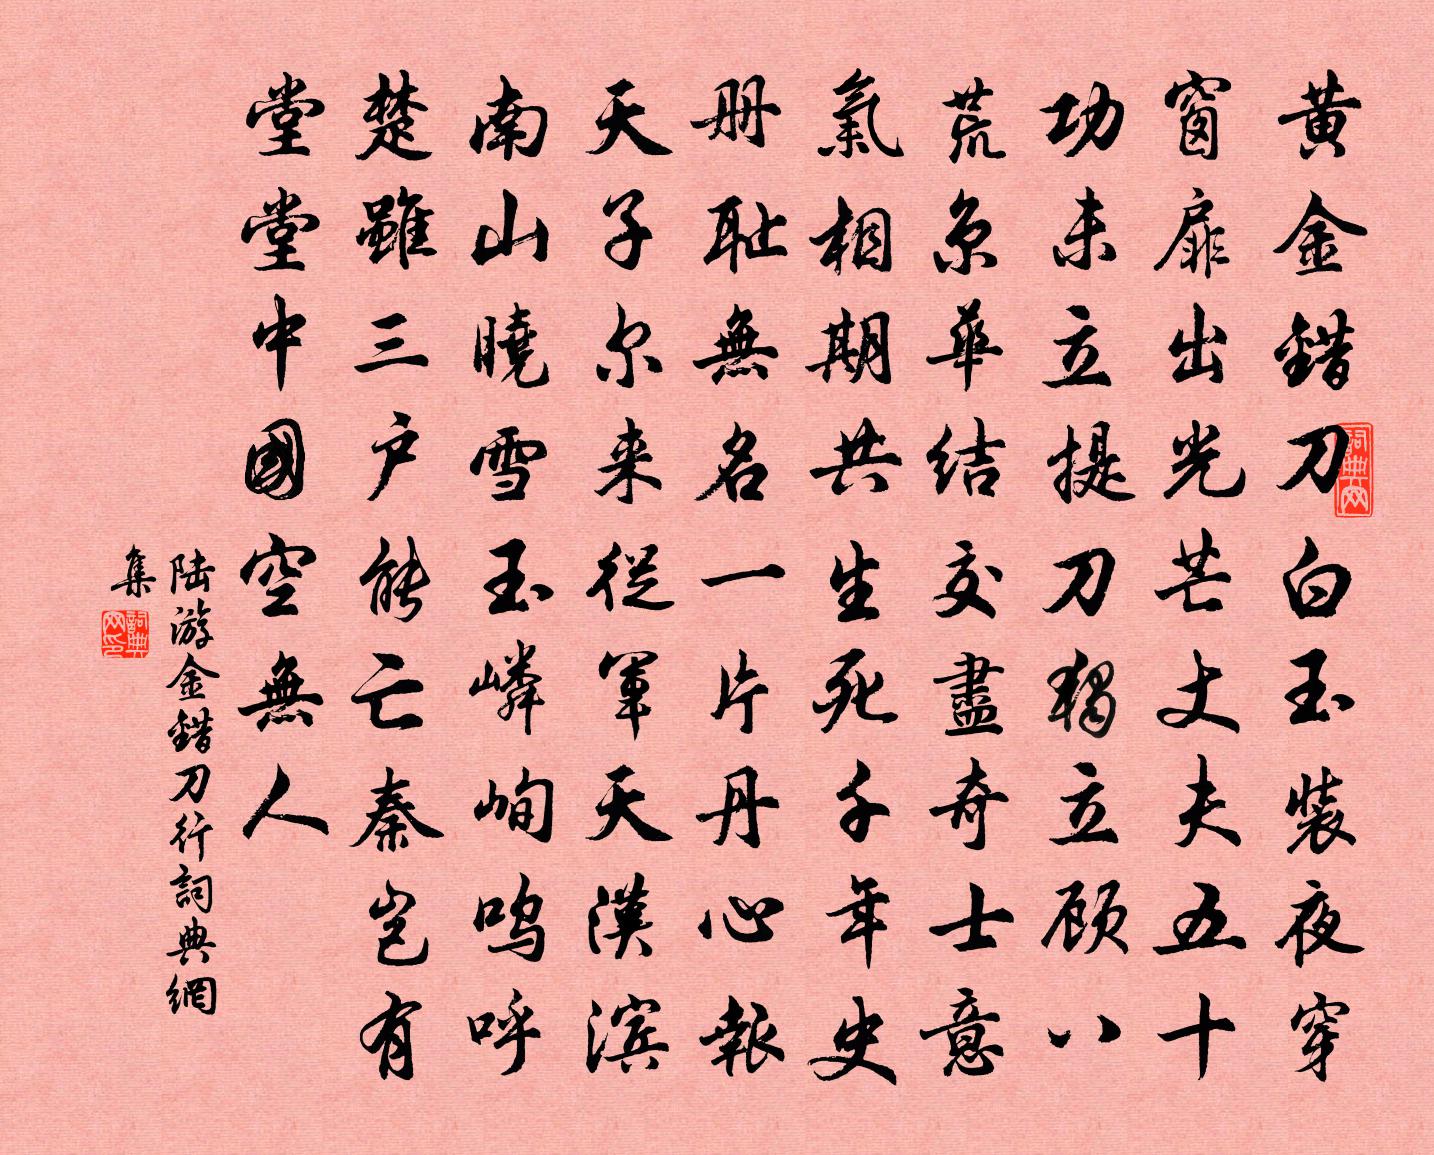 黄金錯刀白玉裝夜穿
窗扉出光芒丈夫五十
功未立提刀獨立顾八
荒京華结交盡奇士意
氣相期共生死千年史
册耻無名一片丹心報
天子尔来從軍天漢滨
南山曉雪玉嶙峋呜呼
楚雖三户能亡秦豈有
堂堂中國空無人
陆游金錯刀行詞典網
集
詞典网
詞典网印